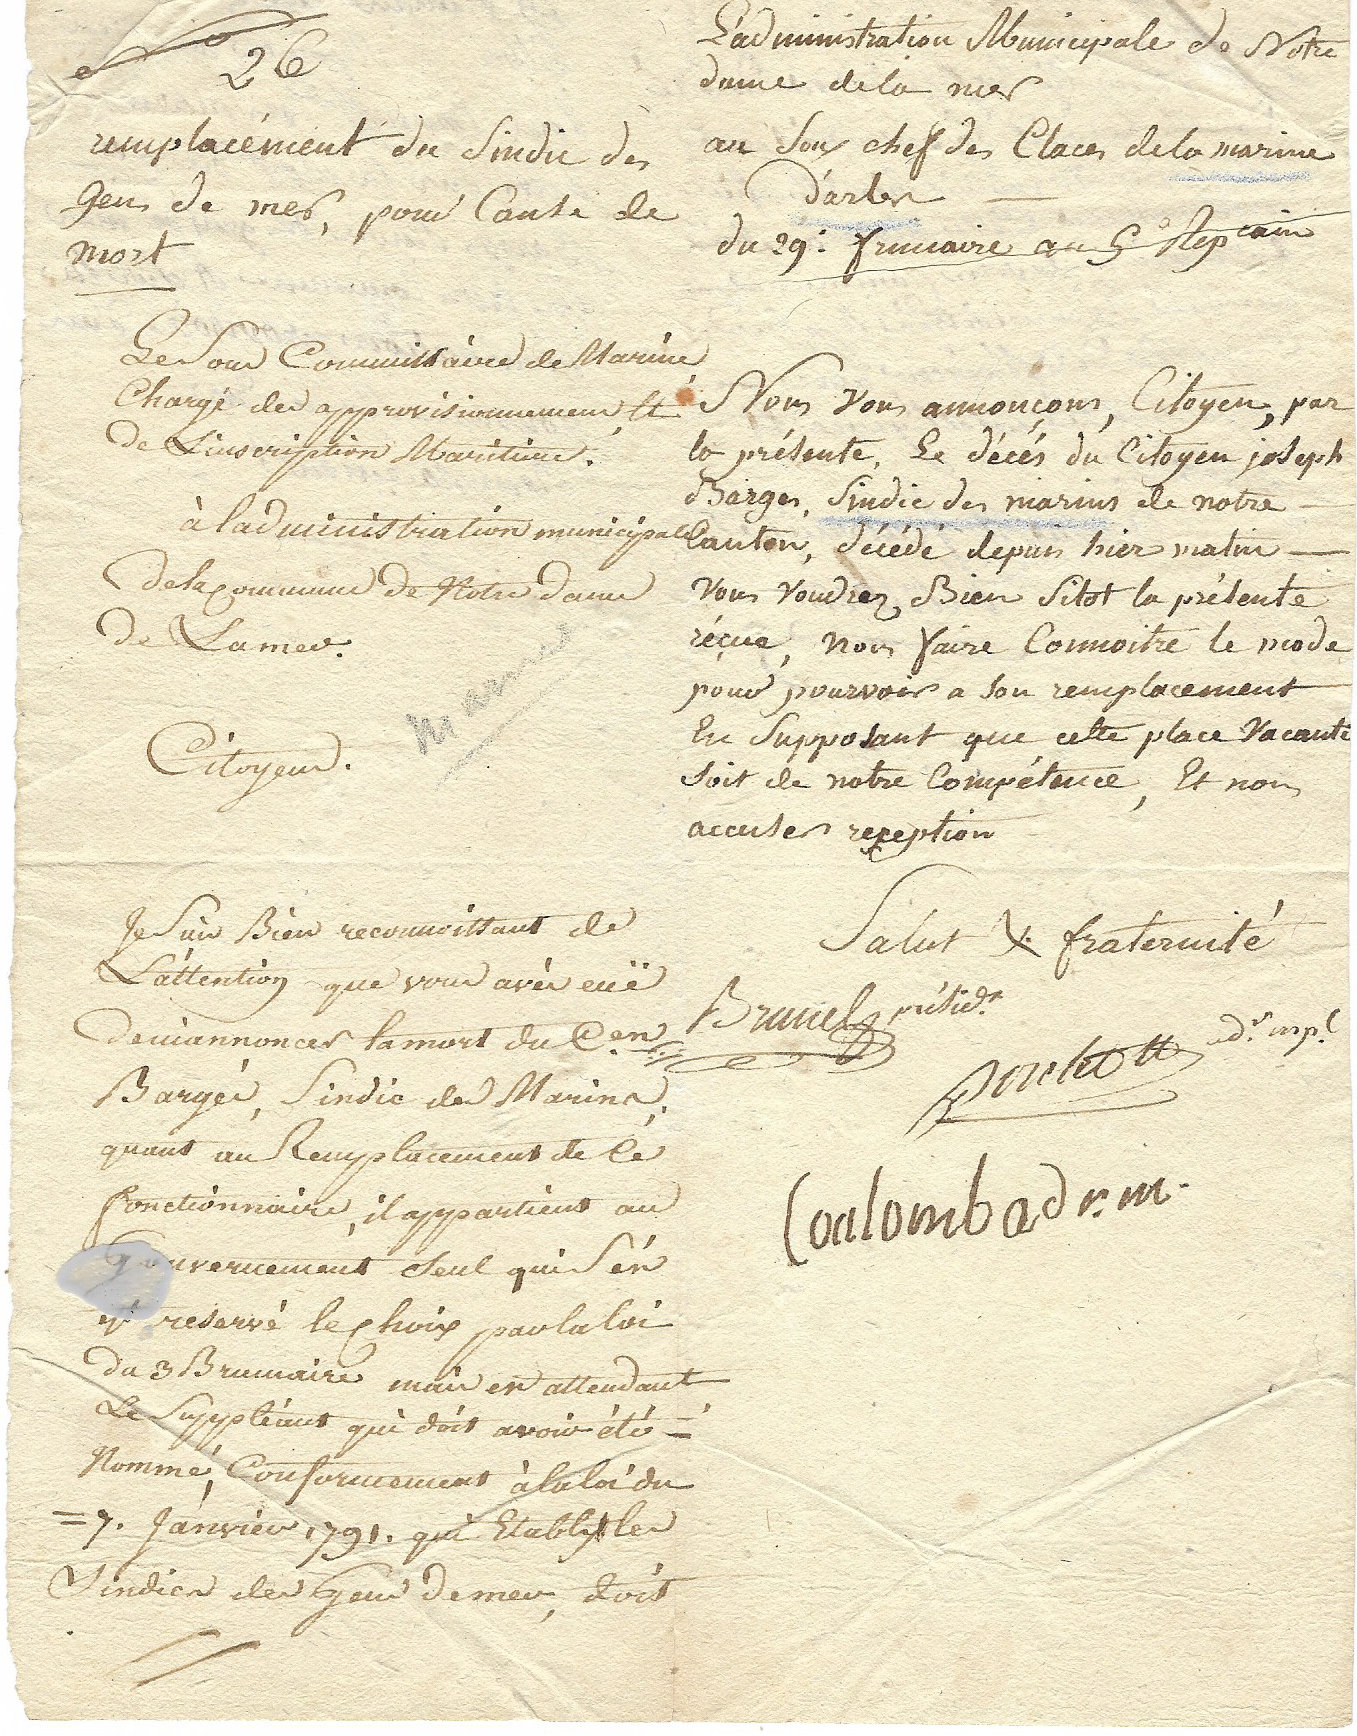 26
remplacément du Sindic des
Gens de mer, pour Cause de
mort
L'administration Municipale de Notre
dame de la mer
au Sous chef des Classes de la marine
d'arles
du 29: frimaire an 5e Repcain
Nous vous annonçons, Citoyen, par
la présente, Le décés du Citoyen joseph
Barges, Sindic des marins de notre
Canton, décédé depuis hier matin —
vous voudrez Bien Sitot la présente
réçue, nous faire Connoitre le mode
pour pourvoir a Son remplacement
En Supposant que cette place Vacante
Soit de notre Compétence, Et nous
accuser reception
Salut & fraternité
Brunel présidt
adr mpl
Coulomb adr. m.
Le Sous Commissaire de Marine
Chargé des approvisionnemens, Et
de L'inscription Maritime.
à l'administration municipale
de la Commune de Notre dame
de Lamer.
marine
Citoyens.
Je Suis Bien reconnoissant de
L'attention que vous avés euë
de m'annoncer la mort du Cen
Bargés, Sindic des Marins,
quant au Remplacement de Cé
fonctionnaire, il appartient au
Gouvernement Seul qui S'én
est reservé le choix par la loi
du 3 Brumaire mais en attendant
Le Suppléant qui doit avoir été
Nommé, Conformement à la loi du
=7. Janvier 1791. qui Etably les
Sindics des Gens de mer, doit